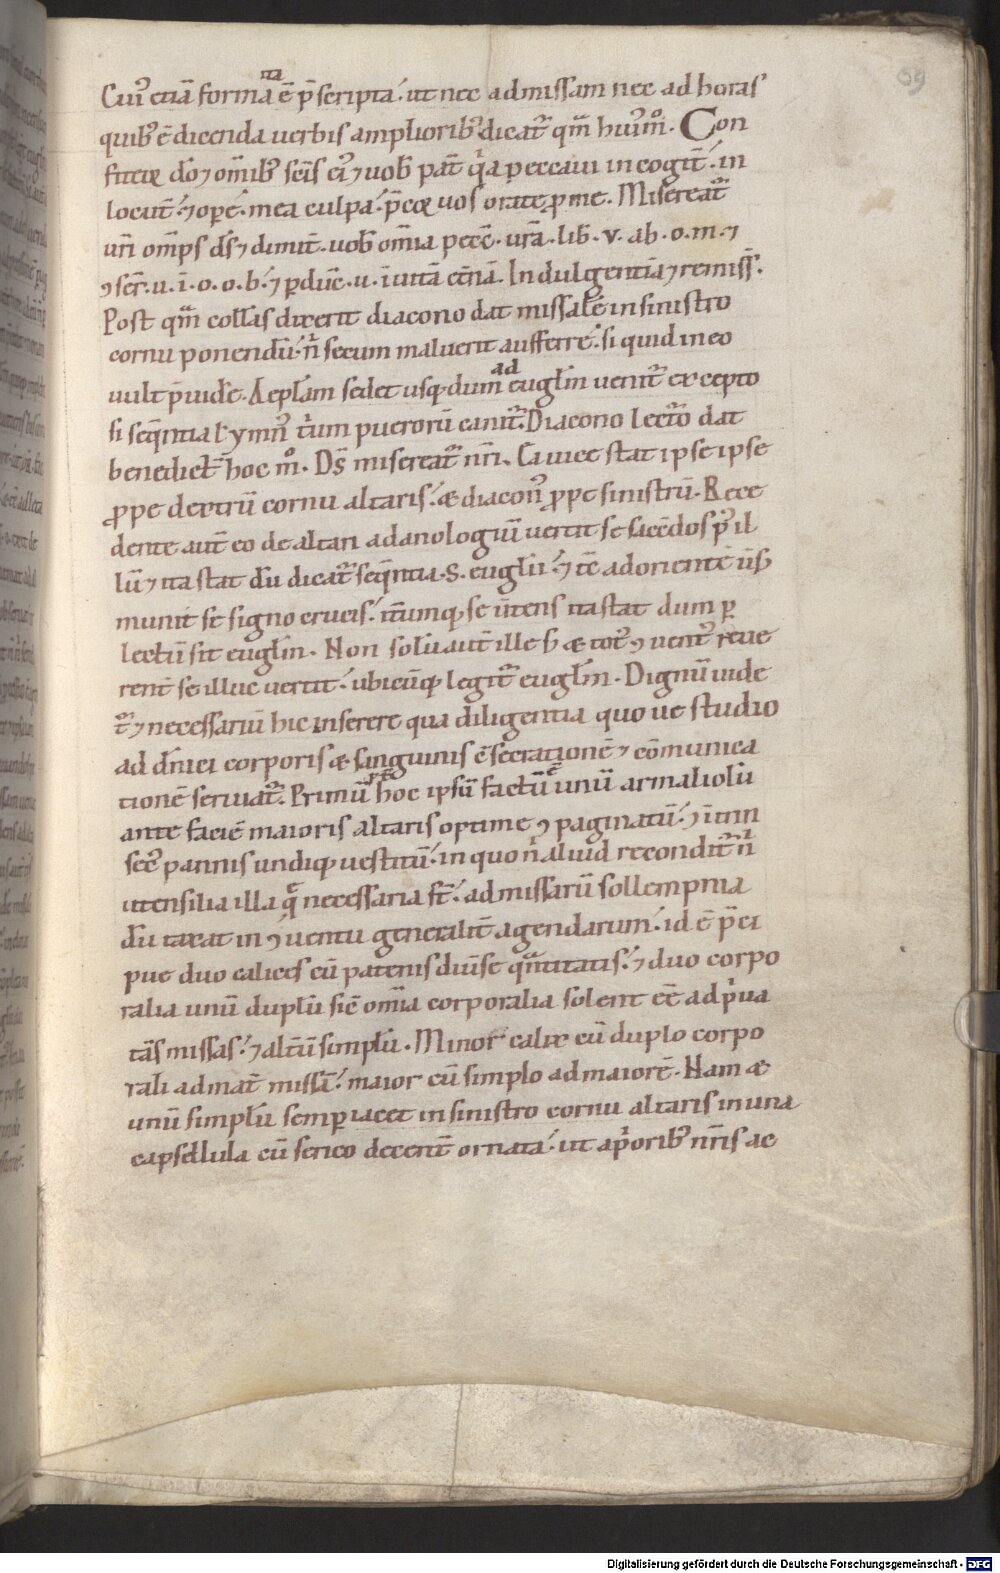 59
Cui᷒ etiā forma ita ē p̄scripta. ut nec ad missam nec ad horas
quib; ē dicenda uerbis amplioribꝰ dicat᷒ qm̄ huiꝰmoi. Con
fiteor dō ⁊ om̄ibꝰ sc̄is ei᷒ ⁊ uob pat̄ qͥa peccaui in cogit̄. in
locut̄. ⁊ ope. mea culpa. p̄cor uos orate ꝓ me. Misereat᷒
ur̄i om̄ps ds̄ ⁊ dimit̄. uob om̄ia pecc̄. ur̄a. lib. v. ab. o. m. ⁊
ꝯser̄. u. i. o. o. b. ⁊ ꝑduc̄. u. ī uitā et̄nā. Indulgentiā ⁊ remiss̄.
Post qm̄ coll̄as dixerit diacono dat missale in sinistro
cornu ponendū. n̄ secum maluerit aufferre. si quid in eo
uult p̄uidē. A epl̄am sedet usq; dum ad eugl̄m uenit᷒ excepto
si seq̄ntia l ymn᷒ t̓um puerorū canit᷒. Diacono lect̓o dat
benedict̄ hoc m̊. Ds̄ misereat᷒ nr̄i. Cauiec stat ipse ipse
ꝓpe dextrū cornu altaris. & diacon᷒ ꝓpe sinistrū. Rece
dente aut̄ eo de altari ad anologiū uertit se sac̄dos p᷒ il
lū ⁊ ita stat dū dicat᷒ seq̄ntia. S. eugl̄ii. ⁊ tc̄ ad orientē ūs᷒
munit se signo crucis. it̄umq; se ūtens ita stat dum ꝑ
lectū sit eugl̄m. Non solū aut̄ ille s; & tot᷒ ꝯuent᷒ reue
rent̄ se illuc uertit. ubicūq; legit᷒ eugl̄m. Dignū uide
t᷒ ⁊ necessariū hic inserere qua diligentia quo ue studio
ad dn̄ici corporis & sanguinis c̄secrationē ⁊ cōmunica
tionē seruat᷒. Primū ꝓpt hoc ipsū factū ē unū armaliolū
ante faciē maioris altaris optime ꝯpaginatū. ⁊ īt̄in
sec᷒ pannis undiq; uestitū. in quo n̓ aliud recondit᷒ n̓
utensilia illa q̄ necessaria st̄. ad missarū sollempnia
dū taxat in ꝯuentu generalit̄ agendarum. id ē p̄ci
pue duo calices cū patenis diūse qᷓntitatis. ⁊ duo corpo
ralia unū duplū sic̄ om̄ia corporalia solent eē ad pͥua
tas missas. ⁊ alt̄ū simplū. Minor calix cū duplo corpo
rali ad mat̄ missā. maior cū simplo ad maiorē. Nam &
unū simplū semꝑ iacet in sinistro cornu altaris in una
capsellula cū serico decent̄ ornata. ut a pͥoribꝰ nr̄is ac
Digitalisierung gefördert durch die Deutsche Forschungsgemeinschaft - DFG